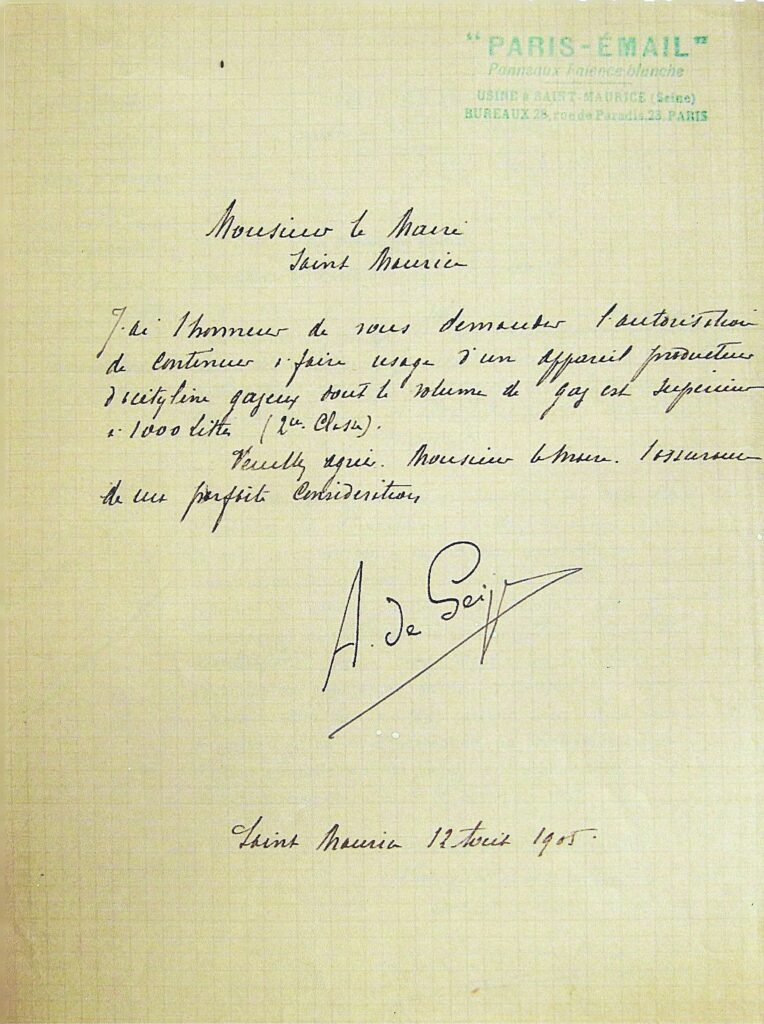 "PARIS-ÉMAIL"
Panneaux Faïence blanche
USINE à SAINT-MAURICE (Seine)
BUREAUX 28, rue de Paradis, 28, PARIS
Monsieur le Maire
Saint Maurice
J'ai l'honneur de vous demander l'autorisation
de continuer à faire usage d'un appareil producteur
d'acétylène gazeux dont le volume de gaz est supérieur
à 1000 Litres (2me Classe).
Veuillez agréer. Monsieur le Maire. l'assurance
de ma parfaite considération
A. de
Saint Maurice 12 Août 1905.